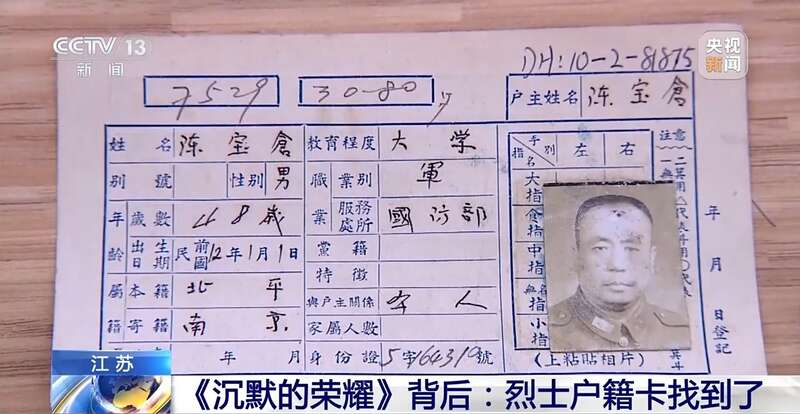 CCTV 13
新闻
央视
新闻
DH:10-2-81875
7529
30-80
户主姓名 陈宝倉
姓名 陈宝倉 教育程度 大学
別號 性別 男 職業 業別 軍
年齡 歲數 48歲 服務處所 國防部
出生日期 民國前12年1月1日 黨籍
特徵
屬籍 本籍 北平 與戶主關係 本人
寄籍 南京 家屬人數
年 月 身份證 5字164319號
手別 左 右
指名
大指
食指
中指
無名指
小指
(上粘貼相片)
注意
年 月 日登記
江苏
《沉默的荣耀》背后：烈士户籍卡找到了